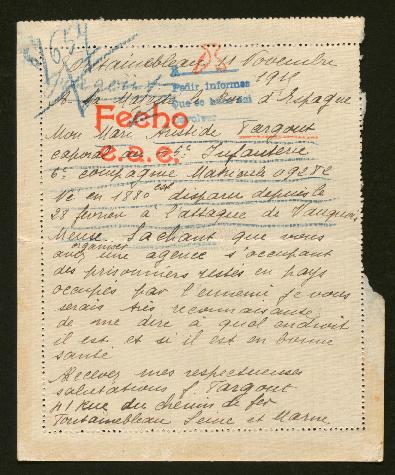 Fontainebleau 11 Novembre
1915
A Sa Majesté le Roi d'Espagne
Pedir informes
Fecho
c.a.c.
Mon Mari Aristide Targout
caporal au 5e Infanterie
6e compagnie Matricule 09282
Né en 1880 est disparu depuis le
28 février à l'attaque de Vauquois
Meuse. Sachant que vous
avez organisé une agence s'occupant
des prisonniers restés en pays
occupés par l'ennemi je vous
serais très reconnaissante
de me dire à quel endroit
il est et si il est en bonne
santé
Recevez mes respectueuses
salutations J. Targout
41 rue du chemin de fer
Fontainebleau Seine et Marne